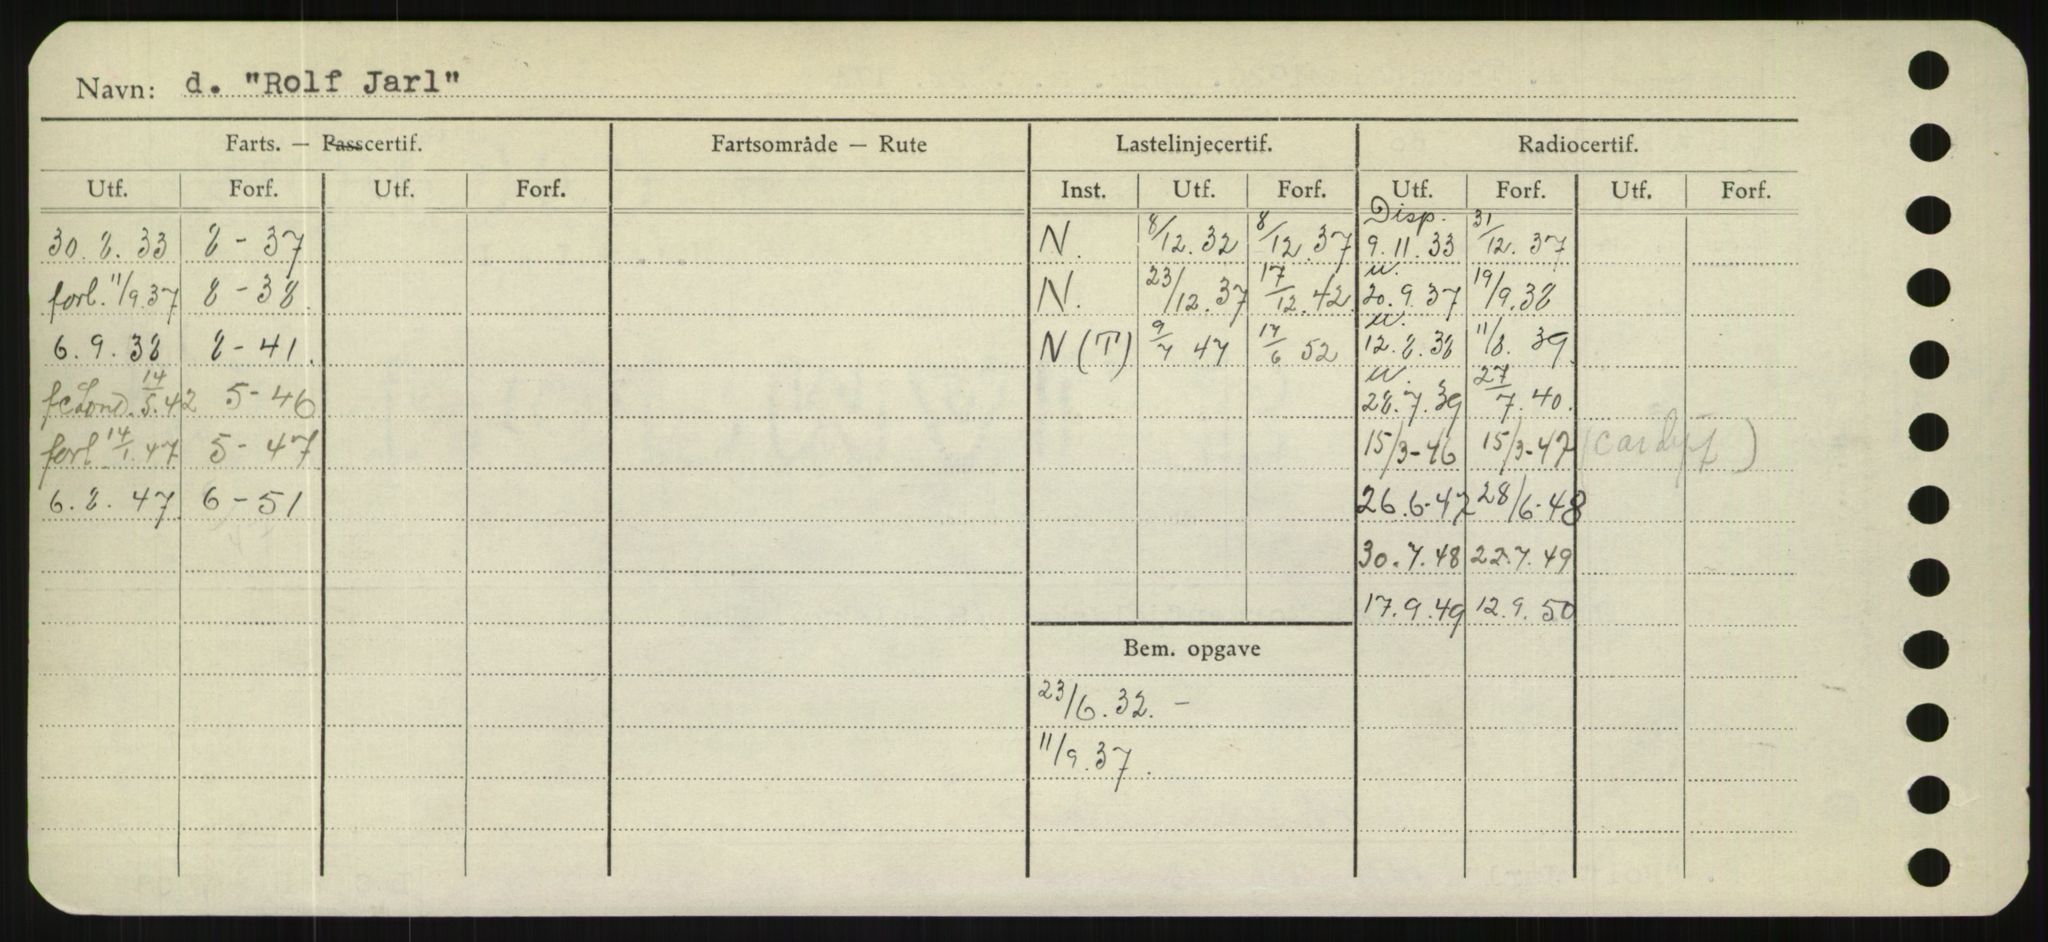 Navn: d. "Rolf Jarl"
Farts. — Passcertif. Fartsområde — Rute Lastelinjecertif. Radiocertif.
Utf. Forf. Utf. Forf. Inst. Utf. Forf. Utf. Forf. Utf. Forf.
30. 8. 33 8 - 37 N. 8/12. 32 8/12. 37 Disp. 9. 11. 33 31/12. 37
forl. 11/9. 37 8 - 38 N. 23/12. 37 17/12. 42 u. 20. 9. 37 19/9. 38
6. 9. 38 8 - 41. N (T) 9/7 47 17/6 52 u. 12. 8. 38 11/8. 39
Lond. 14/5. 42 5 - 46 u. 28. 7. 39 27/7. 40.
forl 14/1. 47 5 - 47 15/3-46 15/3-47 (Cardiff)
6. 8. 47 6 - 51 26. 6-47 28/6-48
30. 7. 48 22.7. 49
17. 9. 49 12. 9. 50
Bem. opgave
23/6. 32. -
11/9. 37.